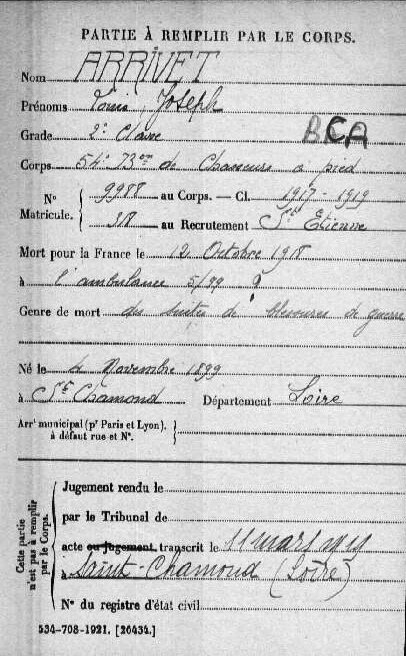 PARTIE À REMPLIR PAR LE CORPS.
Nom ARRIVET
Prénoms Louis Joseph
Grade 2e Classe
BCA
Corps 54e Bon de Chasseurs a pied
N° Matricule. { 9988 au Corps. — Cl. 1917 - 1919
318 au Recrutement St Etienne
Mort pour la France le 12 Octobre 1918
à l'ambulance 5/99
Genre de mort des suites de blessures de guerre
Né le 4 Novembre 1899
à St Chamond Département Loire
Arrt municipal (pr Paris et Lyon), à défaut rue et N°. }
Cette partie n'est pas à remplir par le Corps.
Jugement rendu le
par le Tribunal de
acte ou jugement transcrit le 11 mars 1919
à Saint-Chamond (Loire)
N° du registre d'état civil
534-708-1921. [26434.]